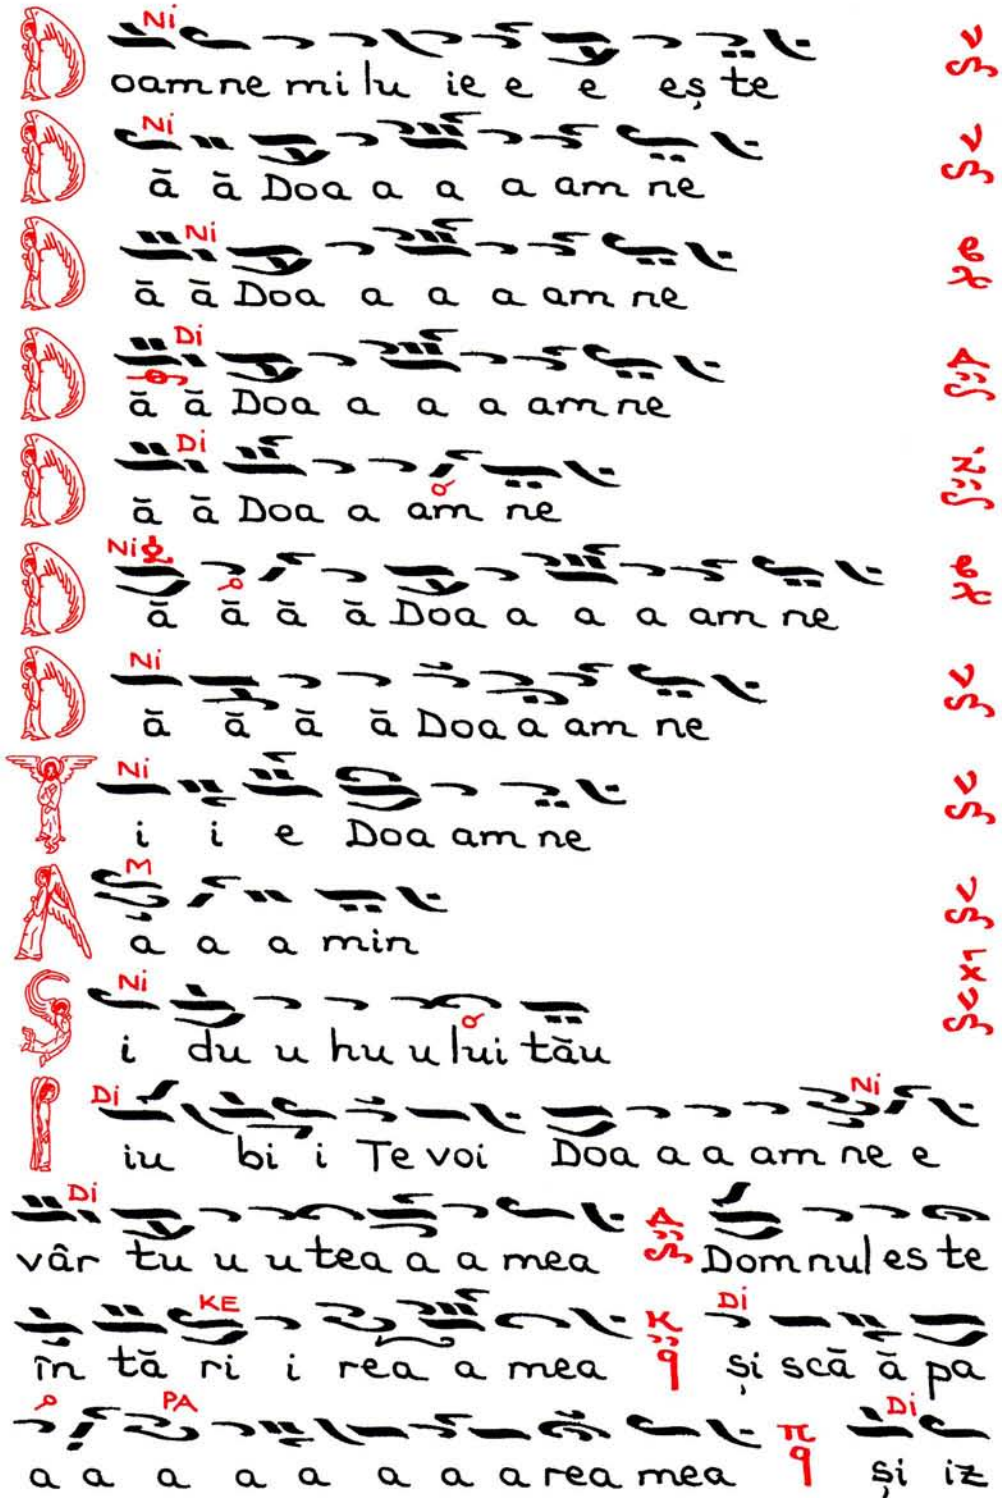 Ni
Doamne mi lu ie e e eș te
Ni
D ă ă Doa a a a am ne
Ni
D ă ă Doa a a a am ne
Di
D ă ă Doa a a a am ne
Di
D ă ă Doa a am ne
Ni
D ă ă ă ă Doa a a a am ne
Ni
D ă ă ă ă Doa a am ne
Ni
Ți i e Doa am ne
M
A a a a min
Ni
Și du u hu u lui tău
Di Ni
Iiu bi i Te voi Doa a a am ne e
Di
vâr tu u u tea a a mea Domnul es te
KE Di
în tă ri i rea a mea și scă ă pa
PA Di
a a a a a a a a rea mea și iz